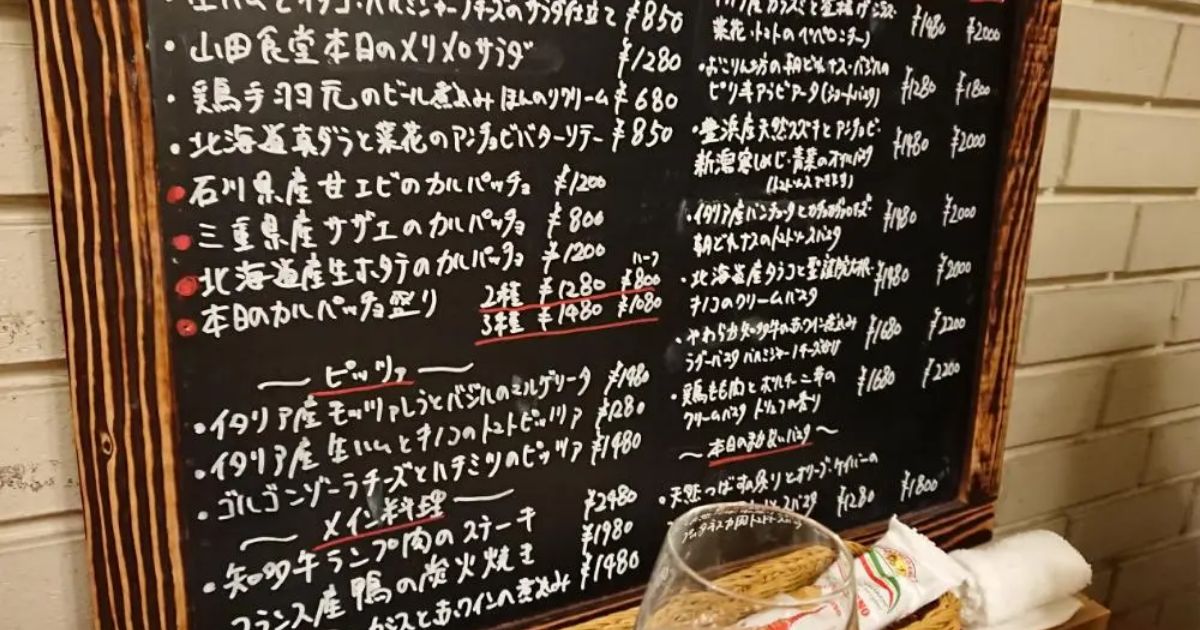 生ハムとイタリア・パルミジャーノチーズのサラダ仕立て ¥850
・山田食堂本日のメリメロサラダ ¥1280
・鶏手羽元のビール煮込み ほんのりクリーム ¥680
・北海道真ダラと菜花のアンチョビバターソテー ¥850
・石川県産甘エビのカルパッチョ ¥1200
・三重県産サザエのカルパッチョ ¥800
・北海道産生ホタテのカルパッチョ ¥1200
・本日のカルパッチョ盛り 2種 ¥1280 ハーフ ¥800
3種 ¥1480 ¥1080
〜 ピッツァ 〜
・イタリア産モッツァレラとバジルのマルゲリータ ¥1480
・イタリア産生ハムとキノコのトマトピッツァ ¥1280
・ゴルゴンゾーラチーズとハチミツのピッツァ ¥1480
〜 メイン料理 〜
・知多牛ランプ肉のステーキ ¥2480
フランス産鴨の炭火焼き ¥1980
と赤ワインの煮込み ¥1480
¥1480 ¥2000
菜花・トマトのペペロンチーノ
・よこりん坊の朝どれナス・バジルの
ピリ辛アラビアータ(ショートパスタ) ¥1280 ¥1800
・豊浜産天然スズキとアンチョビ・
新潟寒しめじ・青菜のオイルパスタ ¥1480 ¥2000
(トマトソースできます)
・イタリア産パンチェッタと
朝どれナスのトマトソースパスタ ¥1480 ¥2000
・北海道産タラコと聖護院大根・
キノコのクリームパスタ ¥1480 ¥2000
・やわらか知多牛の赤ワイン煮込み
ラグーパスタ パルミジャーノチーズがけ ¥1680 ¥2200
・鶏もも肉とポルチーニ茸の
クリームパスタ トリュフの香り ¥1680 ¥2200
〜 本日のまかないパスタ 〜
・天然つばすの炙りとオリーブ・ケイパーの
トマトソースパスタ ¥1280 ¥1800